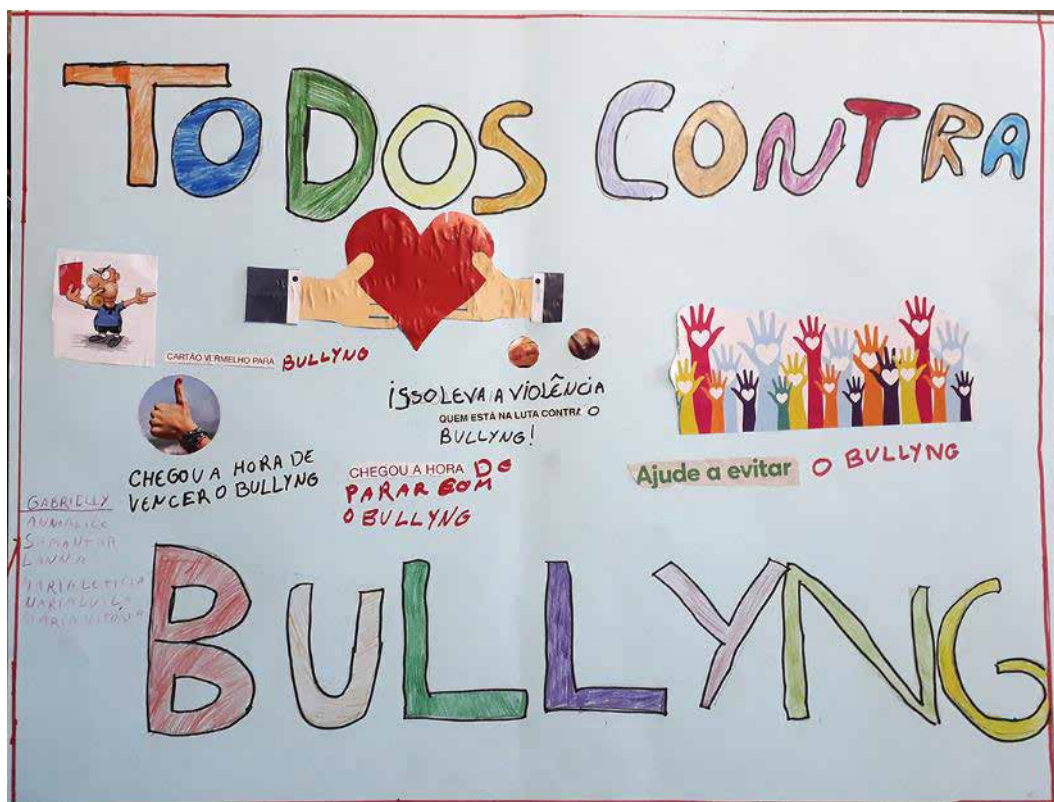 TODOS CONTRA
CARTÃO VERMELHO PARA BULLYNG
ISSO LEVA A VIOLÊNCIA
QUEM ESTÁ NA LUTA CONTRA O
BULLYNG!
CHEGOU A HORA DE
VENCER O BULLYNG
CHEGOU A HORA DE
PARAR COM
O BULLYNG
Ajude a evitar O BULLYNG
GABRIELLY
SAMANTHA
LANNA
MARIA LETICIA
MARIA LUIZA
MARIA VITÓRIA
BULLYNG